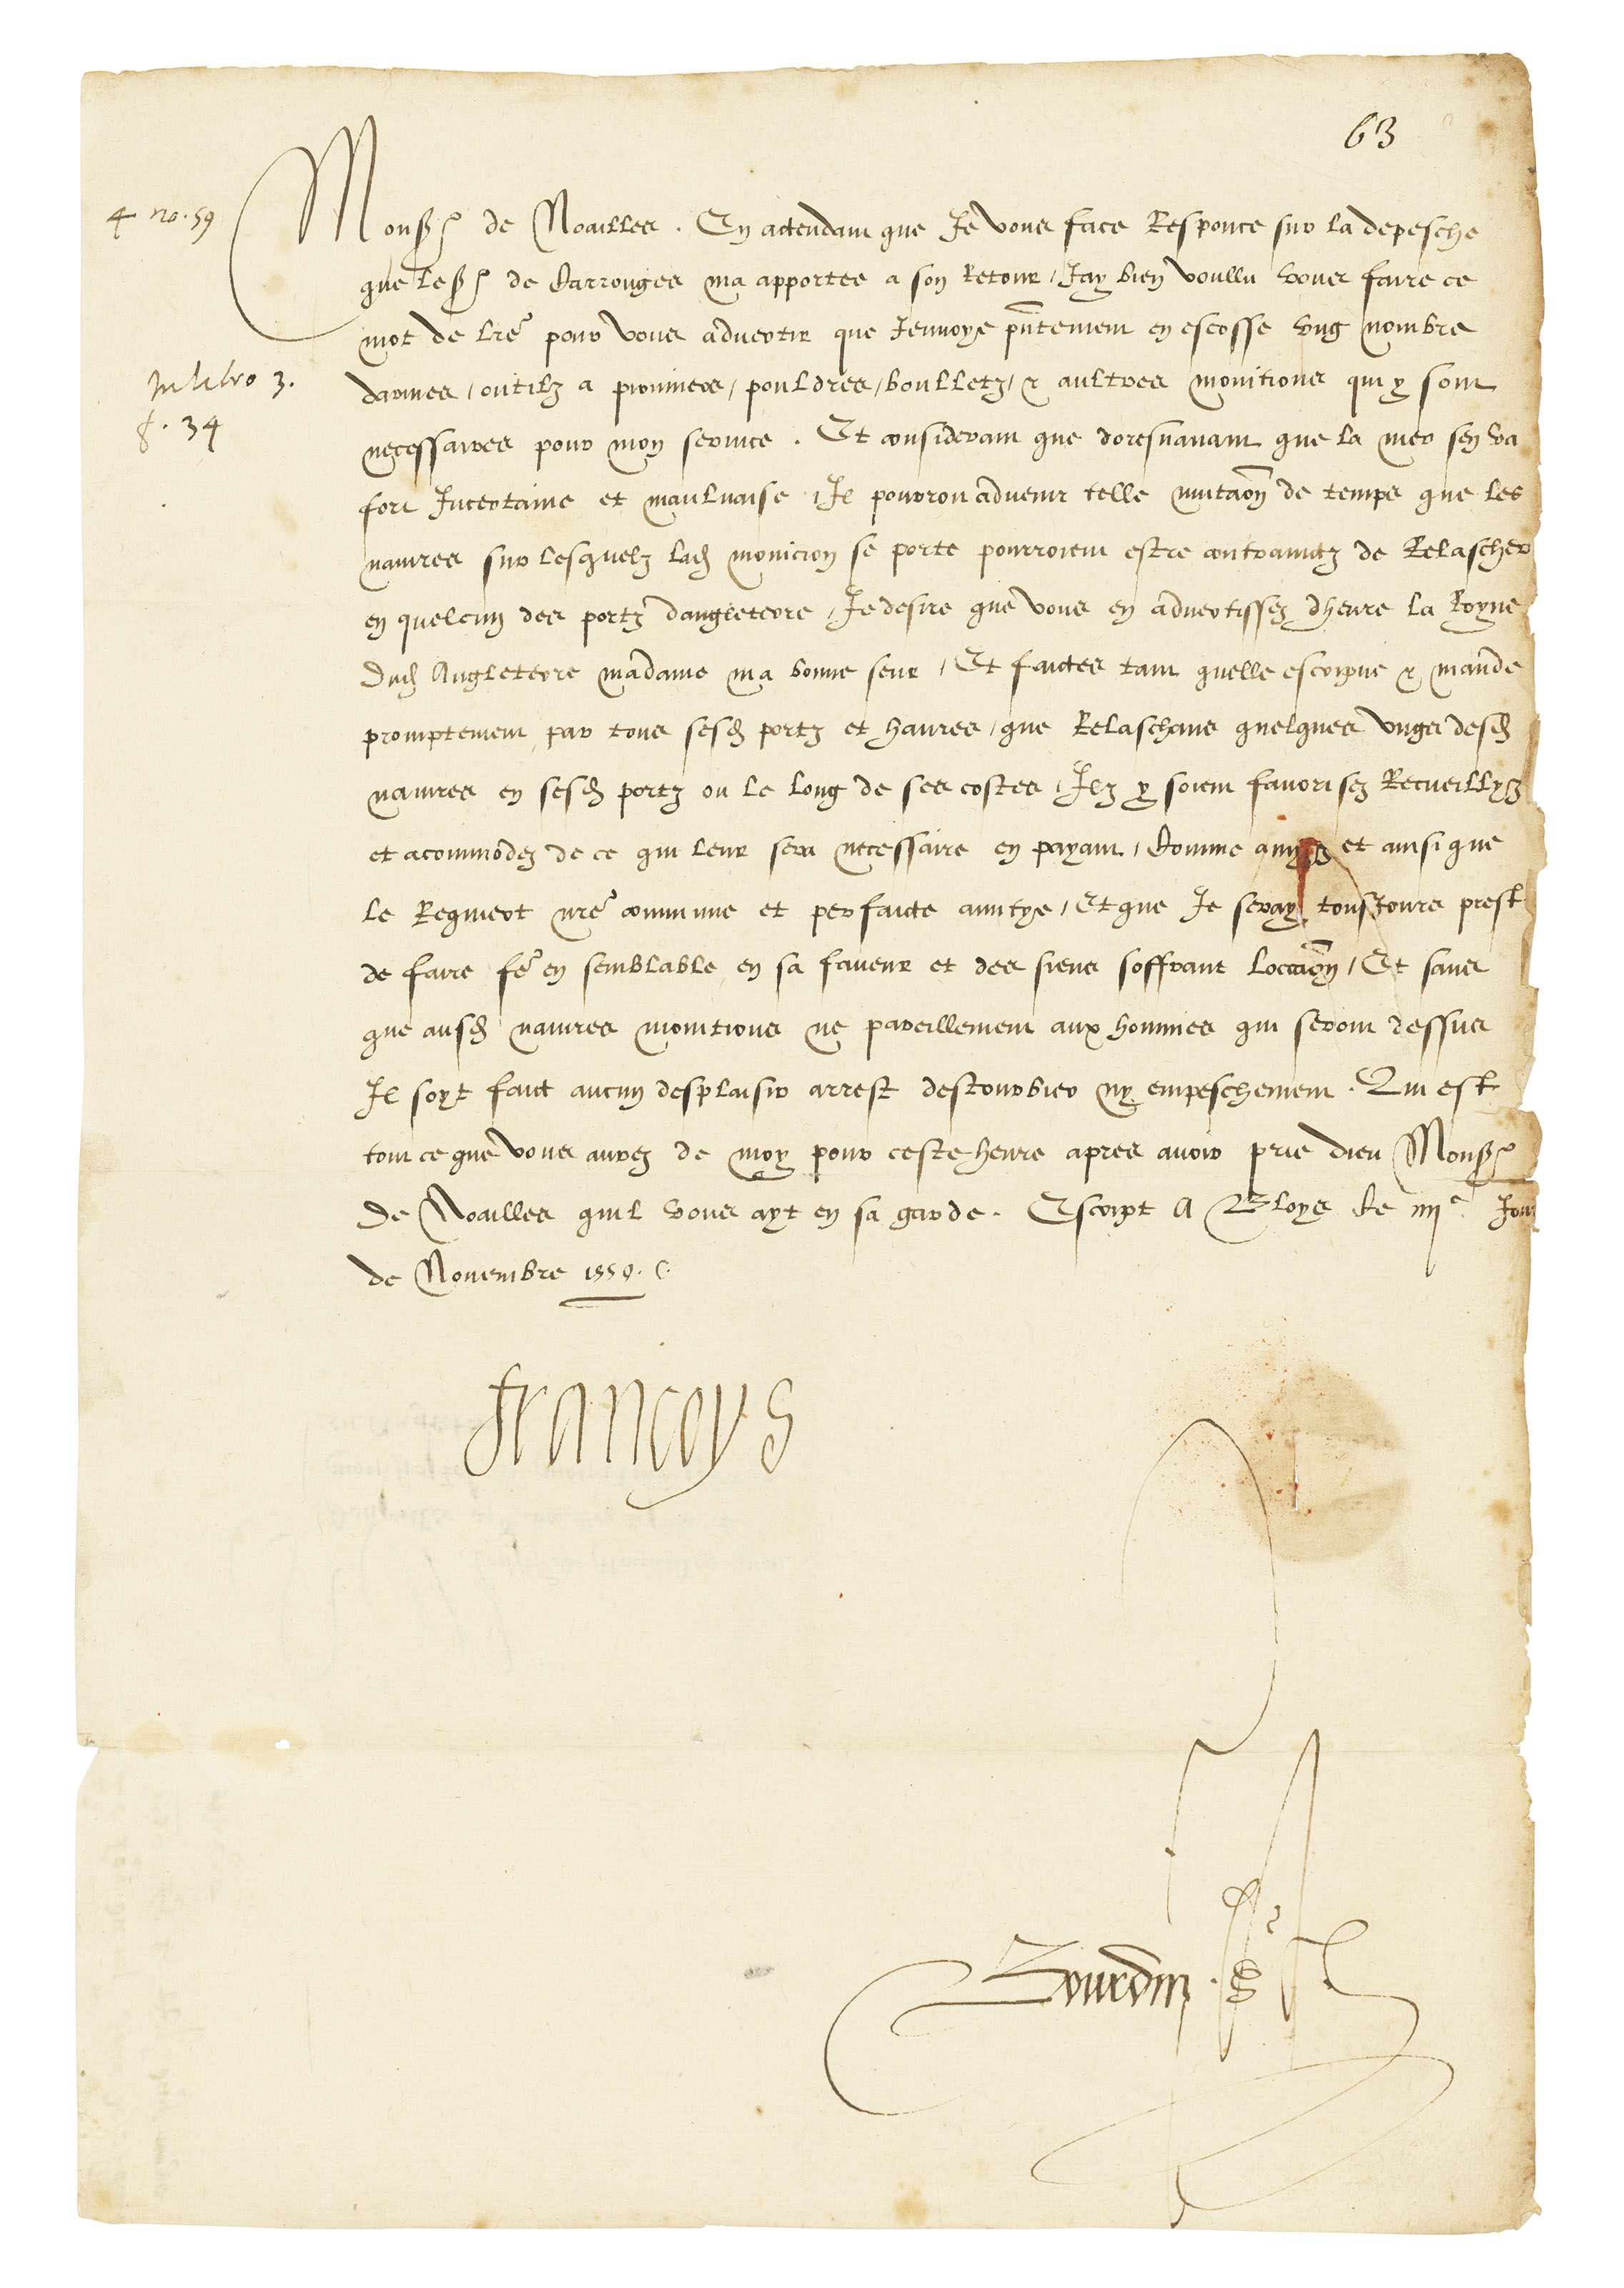 63
4 no. 59
Monsr de Noailles. En actendant que Je vous face Responce sur la depesche
que le sr de Carrouges ma apportee a son Retour / Jay bien voullu vous faire ce
mot de lre pour vous advertir que Jenvoye pntement en escosse ung nombre
In libro 3.
darmes / outilz a pionniers / pouldres / boulletz / & aultres monitions qui y sont
f. 34
necessaires pour mon service. Et considerant que doresnavant que la mer sen va
fort Incertaine et maulvaise / Il pourroit advenir telle mutaon de temps que les
navires sur lesquelz lad monicion se porte pourroient estre contrainctz de Relascher
en quelcun des portz dangleterre / Je desire que vous en advertissez dheure la Royne
dud Angleterre madame ma bonne seur / Et faictes tant quelle escripve & mande
promptement par tous sesd portz et havres / que Relaschans quelques ungs desd
navires en sesd portz ou le long de ses costes / Ilz y soient favorisez Recueillyz
et acommodez de ce qui leur sera necessaire en payant / Comme amys et ainsi que
le Requiert nre commune et perfaicte amytye / Et que Je seray tousjours prest
de faire fe en semblable en sa faveur et des siens soffrant loccaon / Et sans
que ausd navires monitions ne pareillement aux hommes qui seront dessus
Il soyt faict aucun desplaisir arrest destourbier ny empeschement. Qui est
tout ce que vous aurez de moy pour ceste heure apres avoir prie dieu Monsr
de Noailles quil vous ayt en sa garde. Escript A Bloys le iiiie Jour
de Novembre 1559.
francoys
Bourdin